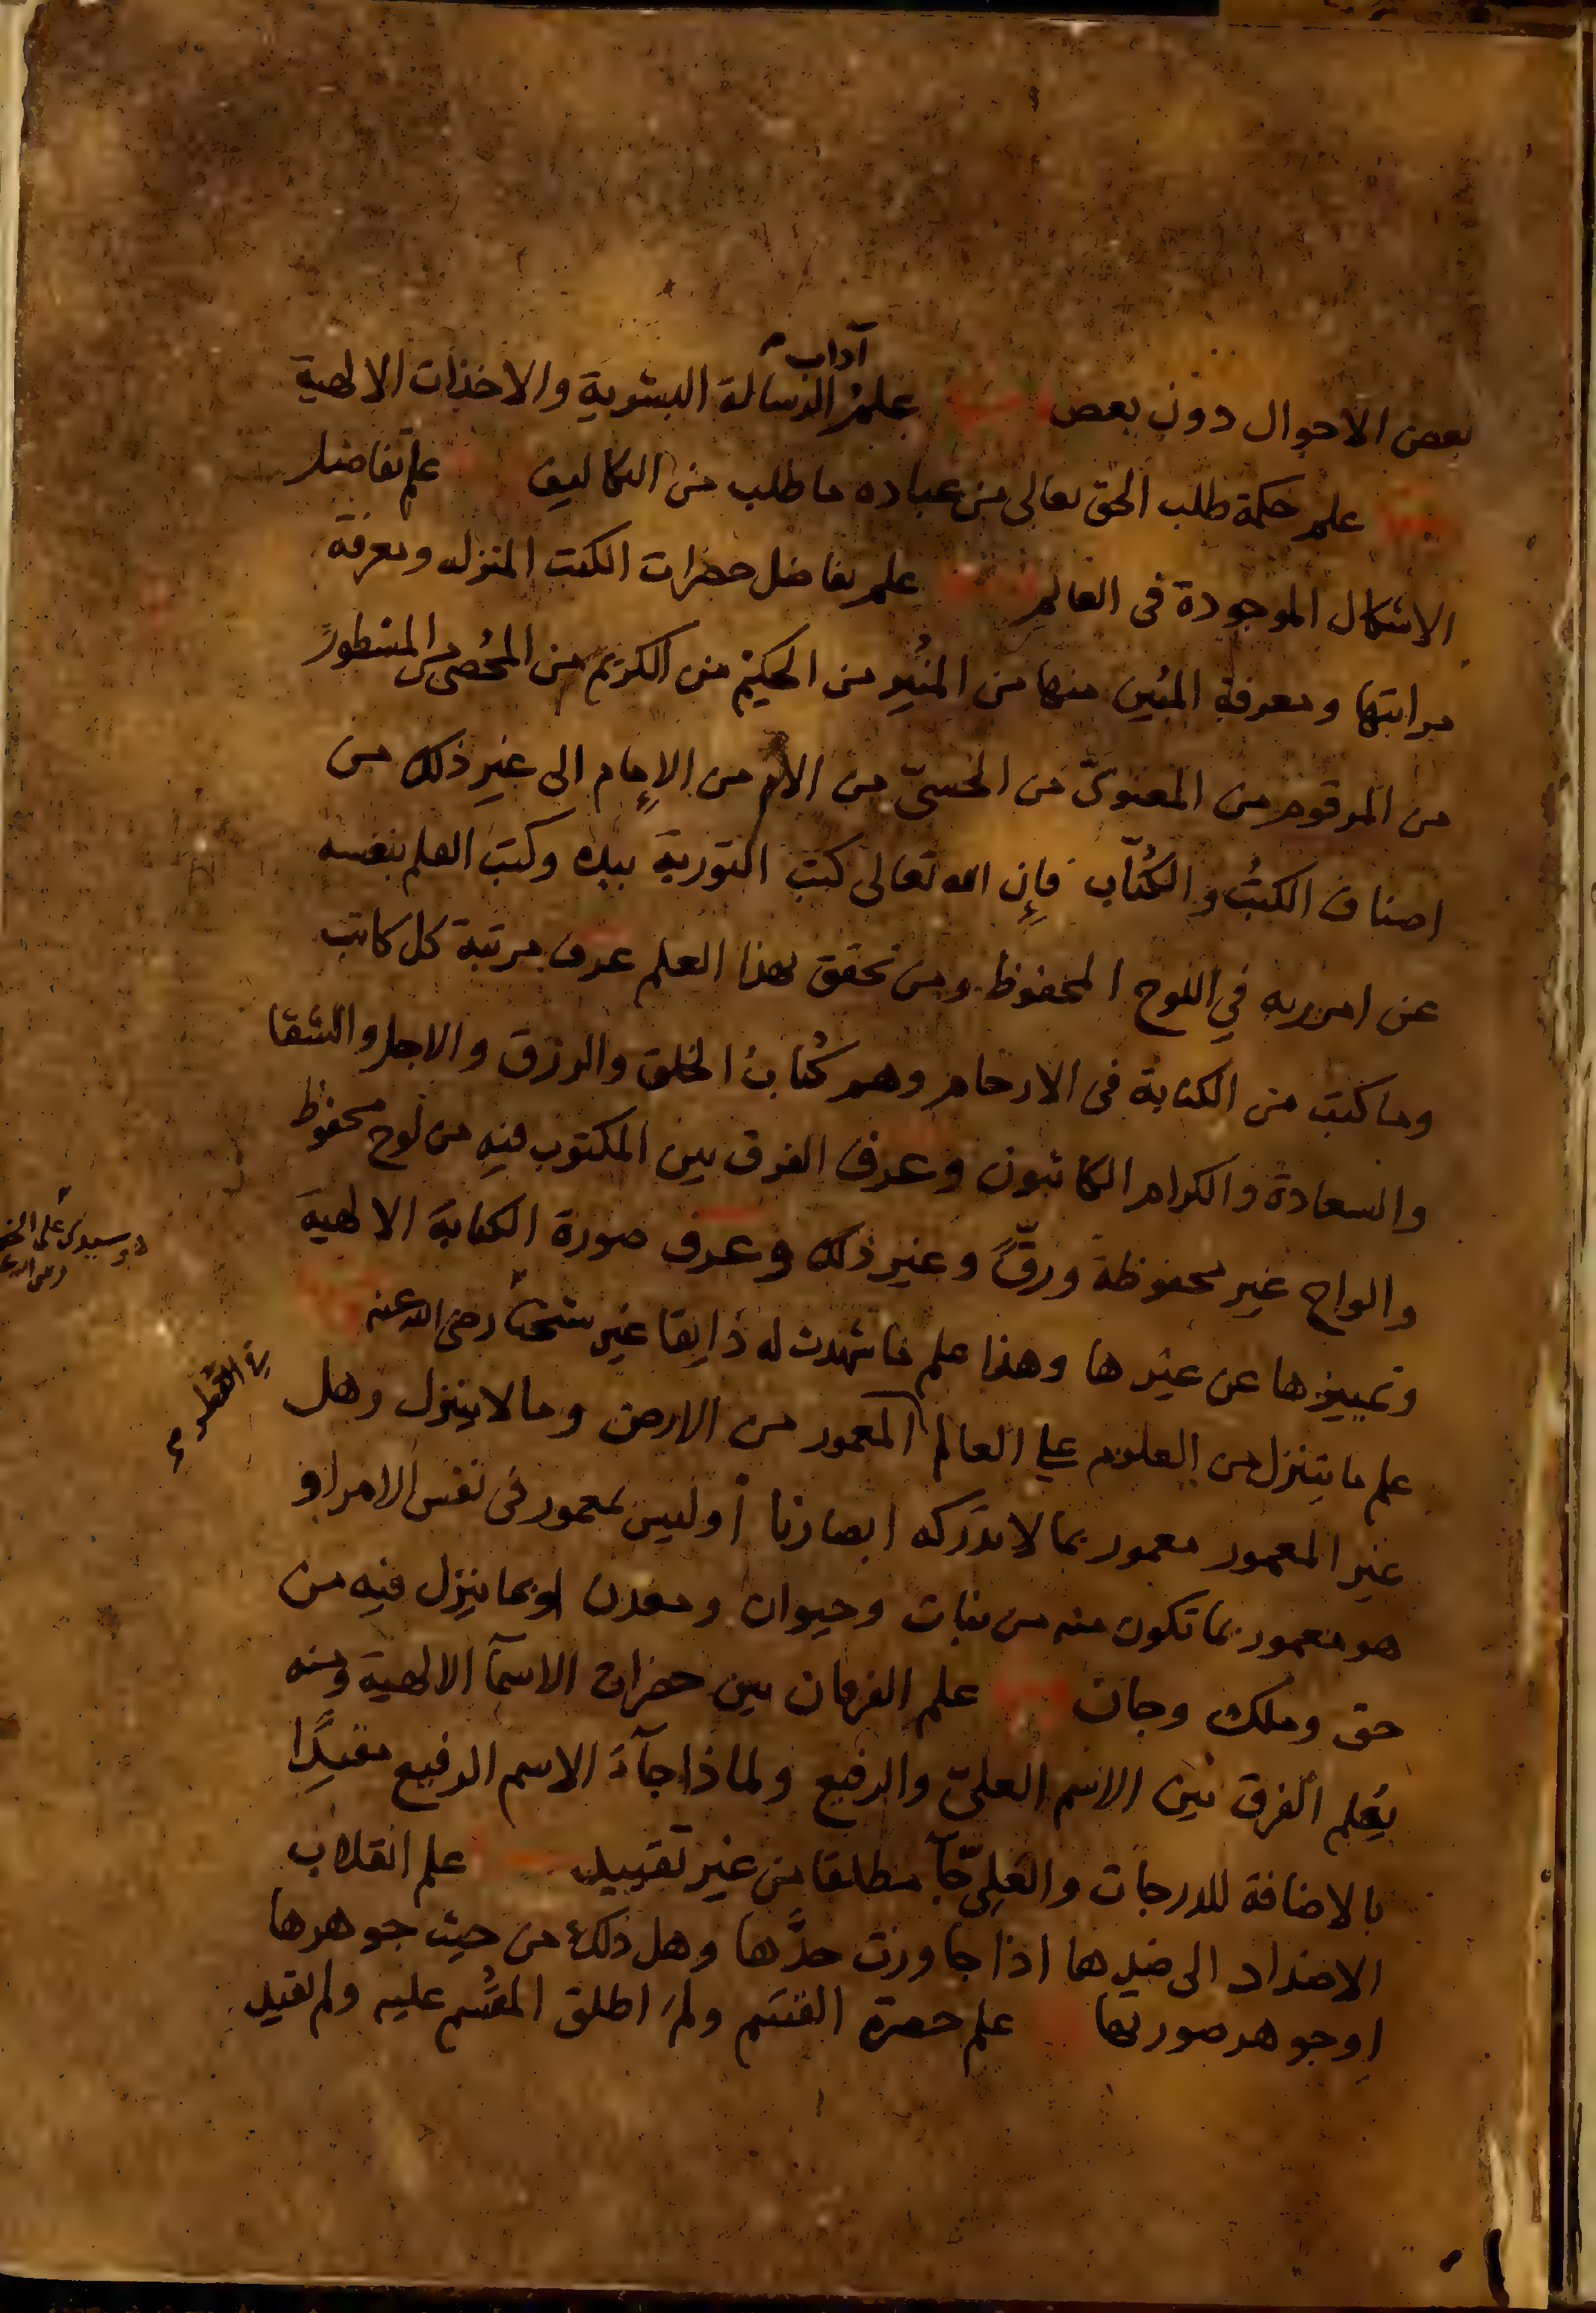 بعض الاحوال دون بعض علم آداب الرسالة البشرية والاخذات الالهية
علم حكمة طلب الحق تعالى من عباده ما طلب من التكاليف علم تفاضل
الاشكال الموجودة فى العالم علم تفاضل حضرات الكتب المنزله ومعرفة
مراتبها ومعرفة المبين منها من المنير من الحكيم من الكريم من المحصى من المسطور
من المرقوم من المعنوىّ من الحسىّ من الأم من الإمام الى غير ذلك من
اصناف الكتب والكُتّاب فإن الله تعالى كتب التورية بيده وكتب القلم بنفسه
عن امر ربه في اللوح المحفوظ ومن تحقق بهذا العلم عرف مرتبة كل كاتب
وما كتب من الكتابة فى الارحام وهم كُتاب الخلق والرزق والاجل والشقا
والسعادة والكرام الكاتبون وعرف الفرق بين المكتوب فيه من لوح محفوظ
والواح غير محفوظة ورقّ وغير ذلك وعرف صورة الكتابة الالهية
وتمييزها عن غيرها وهذا علم ما شهدت له ذايقا غير شيخنا رضى الله عنه
علم ما يتنزل من العلوم على العالم المعمور من الارض وما لا يتنزل وهل
غير المعمور معمور بما لا تدركه ابصارنا أو ليس بمعمور فى نفس الامر او
هو معمور بما تكون منه من نبات وحيوان ومعدن او بما ينزل فيه من
حق وملك وجان علم الفرقان بين حضرات الاسمآ الالهية ومنه
يعلم الفرق بين الاسم العلىّ والرفيع ولماذا جآء الاسم الرفيع مقيدًا
بالاضافة للدرجات والعلىّ جآ مطلقا من غير تقييد علم انقلاب
الاضداد الى ضدها اذا جاوزت حدَّها وهل ذلك من حيث جوهرها
او جوهر صورتها علم حضرة القسم ولم اطلق المقسم عليه ولم لقيد